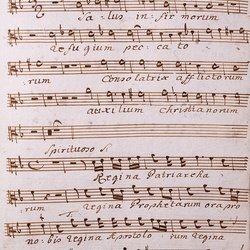 Salus infirmorum
Refugium peccato
rum Consolatrix afflictorum
auxilium Christianorum
Spirituoso
Regina Patriarcha
rum Regina Prophetarum ora pro
nobis Regina Apostolo rum Regina